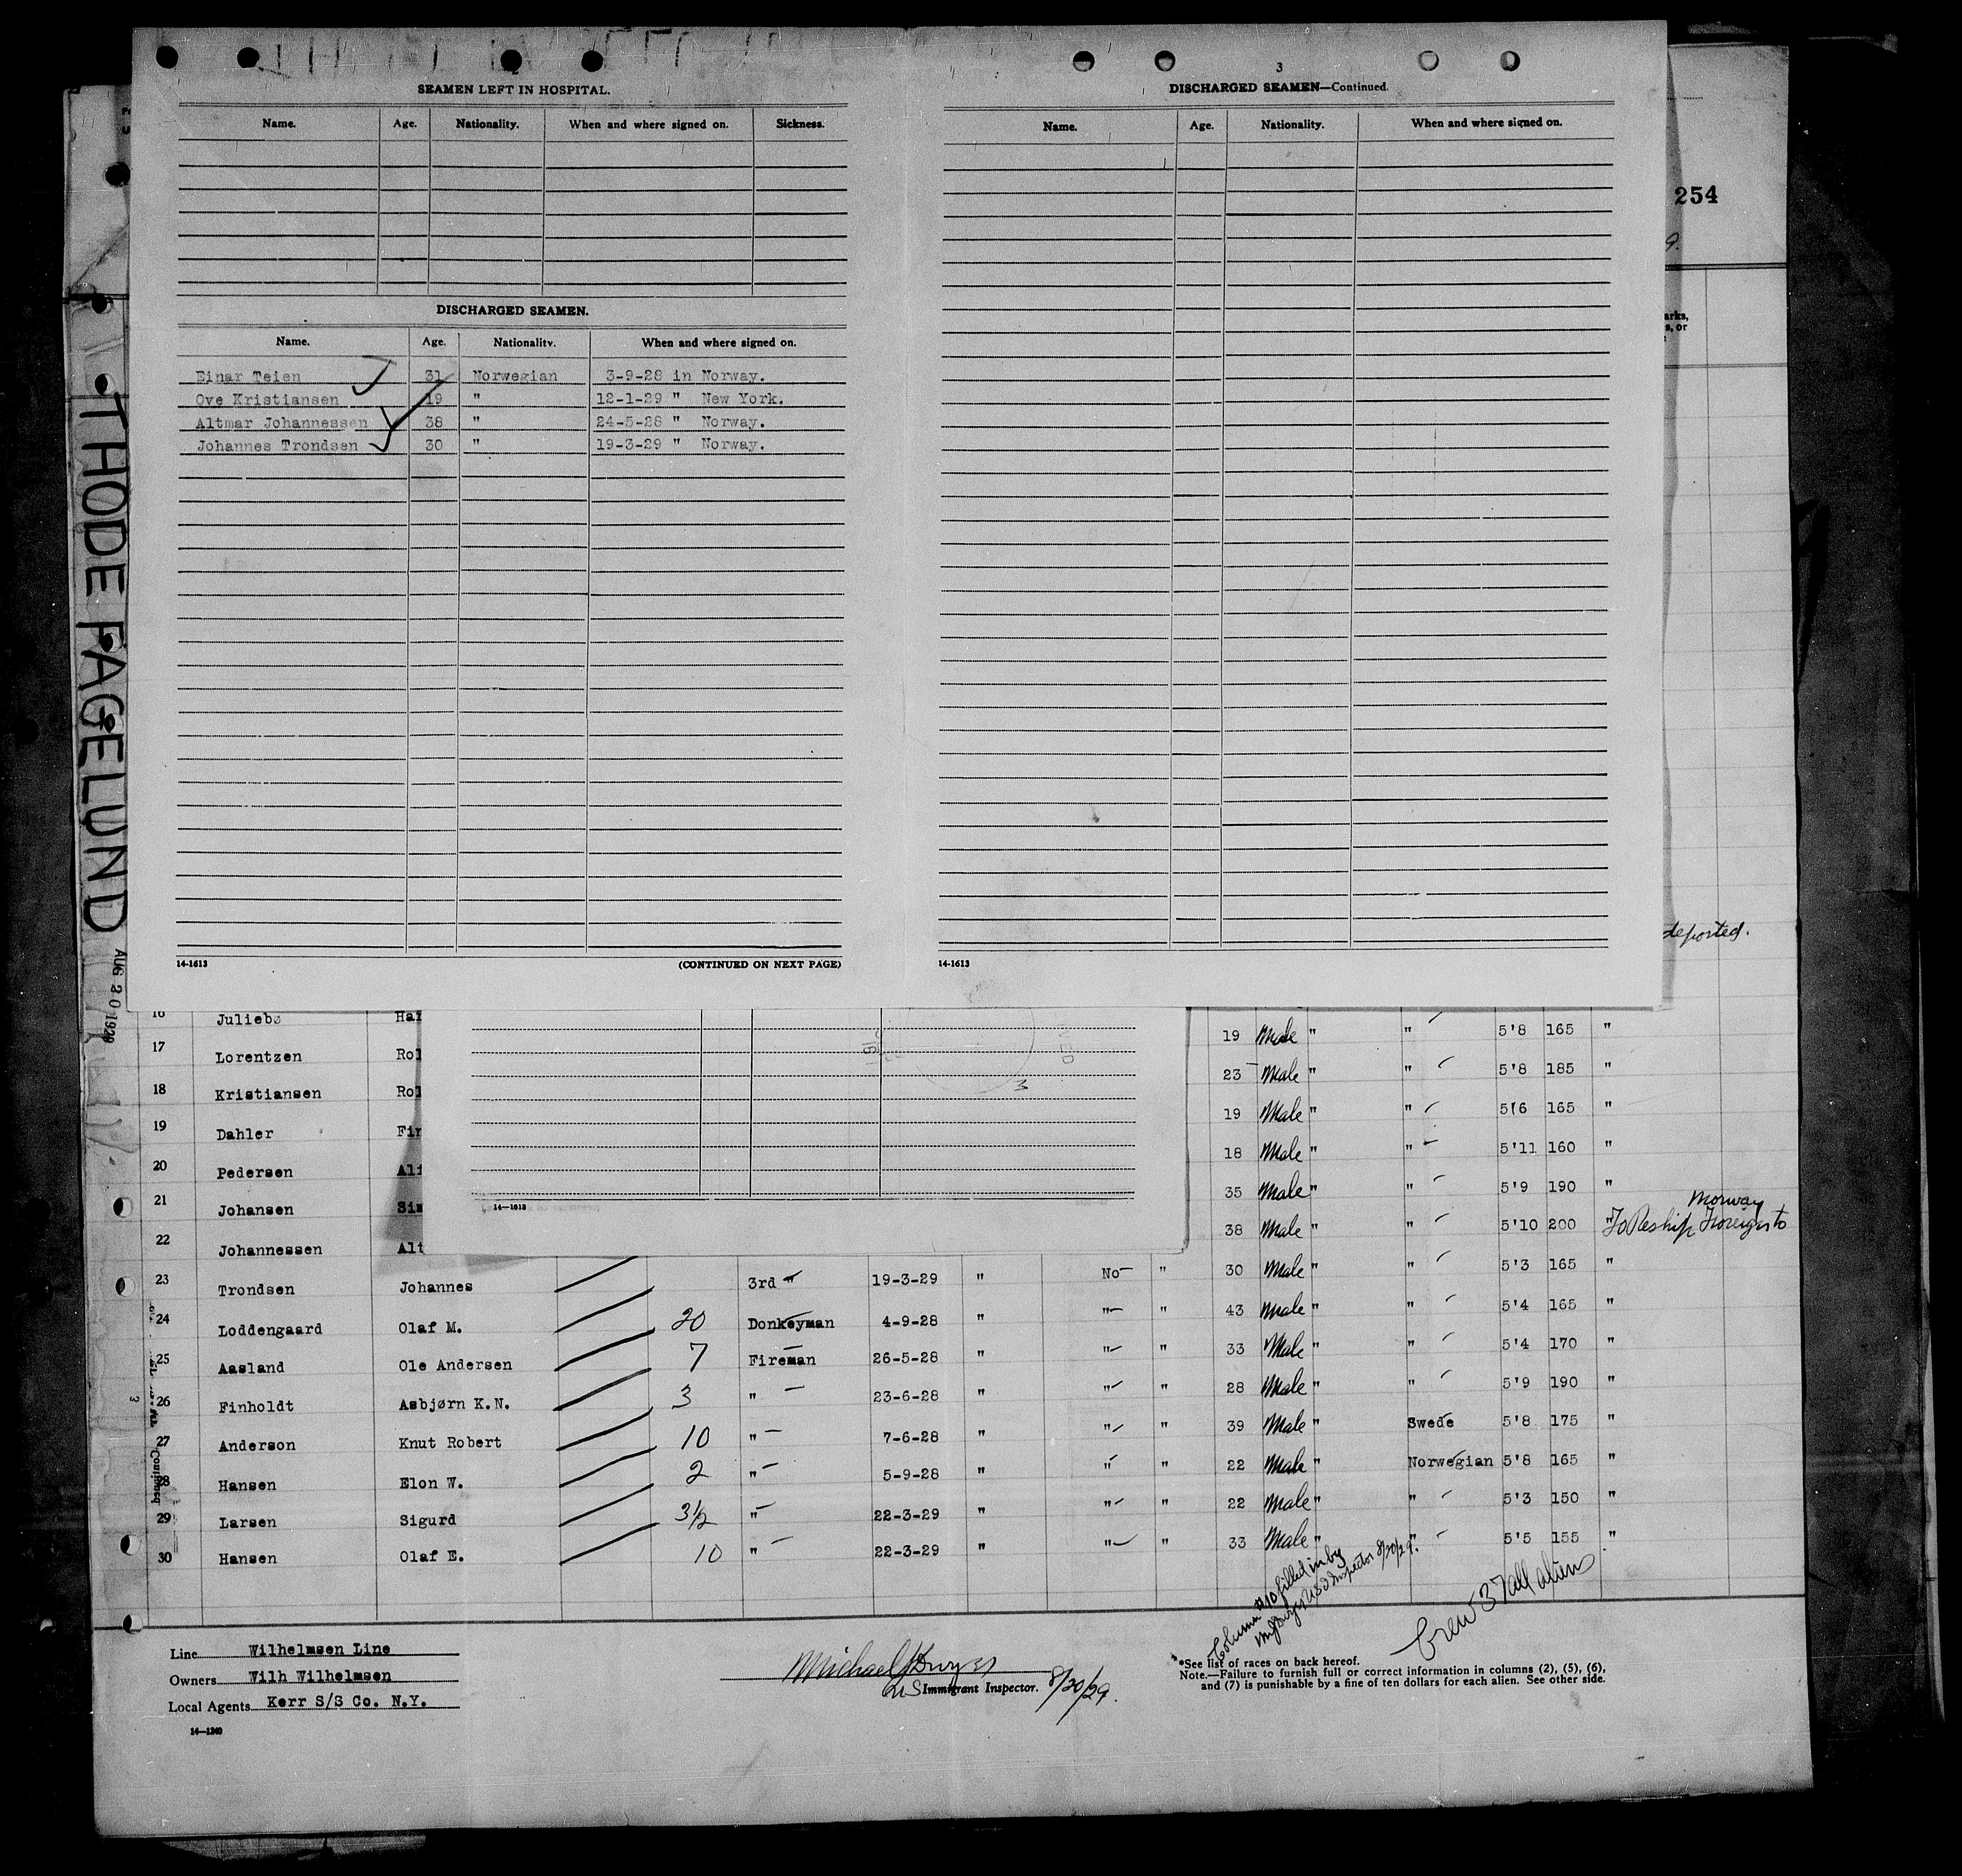 SEAMEN LEFT IN HOSPITAL.
Name. Age. Nationality. When and where signed on. Sickness.
DISCHARGED SEAMEN.
Name. Age. Nationality. When and where signed on.
Einar Teien 31 Norwegian 3-9-28 in Norway.
Ove Kristiansen 19 " 12-1-29 " New York.
Altmar Johannessen 38 " 24-5-28 " Norway.
Johannes Trondsen 30 " 19-3-29 " Norway.
14-1613 (CONTINUED ON NEXT PAGE)
3
DISCHARGED SEAMEN—Continued.
Name. Age. Nationality. When and where signed on.
14-1613
254
9.
arks,
s, or
deported.
THODE FAGELUND
AUG 20 1929
16 Juliebø Har 19 Male " " 5'8 165 "
17 Lorentzen Rol 23 Male " " 5'8 185 "
18 Kristiansen Rol 19 Male " " 5'6 165 "
19 Dahler Fin 18 Male " " 5'11 160 "
20 Pedersen Alf 35 Male " " 5'9 190 "
21 Johansen Sim 38 Male " " 5'10 200 " To Reship Foreign to Norway
22 Johannessen Alt 30 Male " " 5'3 165 "
23 Trondsen Johannes 3rd " 19-3-29 " No " 43 Male " " 5'4 165 "
24 Loddengaard Olaf M. 20 Donkeyman 4-9-28 " " " 33 Male " " 5'4 170 "
25 Aasland Ole Andersen 7 Fireman 26-5-28 " " " 28 Male " " 5'9 190 "
26 Finholdt Asbjørn K.N. 3 " 23-6-28 " " " 39 Male " Swede 5'8 175 "
27 Anderson Knut Robert 10 " 7-6-28 " " " 22 Male " Norwegian 5'8 165 "
28 Hansen Elon W. 2 " 5-9-28 " " " 22 Male " " 5'3 150 "
29 Larsen Sigurd 3½ " 22-3-29 " " " 33 Male " " 5'5 155 "
30 Hansen Olaf E. 10 " 22-3-29 " " "
14—1613
3
Column #10 filled in by
Inspector 8/20/29.
Crew 37 all alien
Line Wilhelmsen Line
Owners Wilh Wilhelmsen
Local Agents Kerr S/S Co. N.Y.
14—1240
Michael J Dwyer
US Immigrant Inspector. 8/20/29.
*See list of races on back hereof.
Note.—Failure to furnish full or correct information in columns (2), (5), (6),
and (7) is punishable by a fine of ten dollars for each alien. See other side.